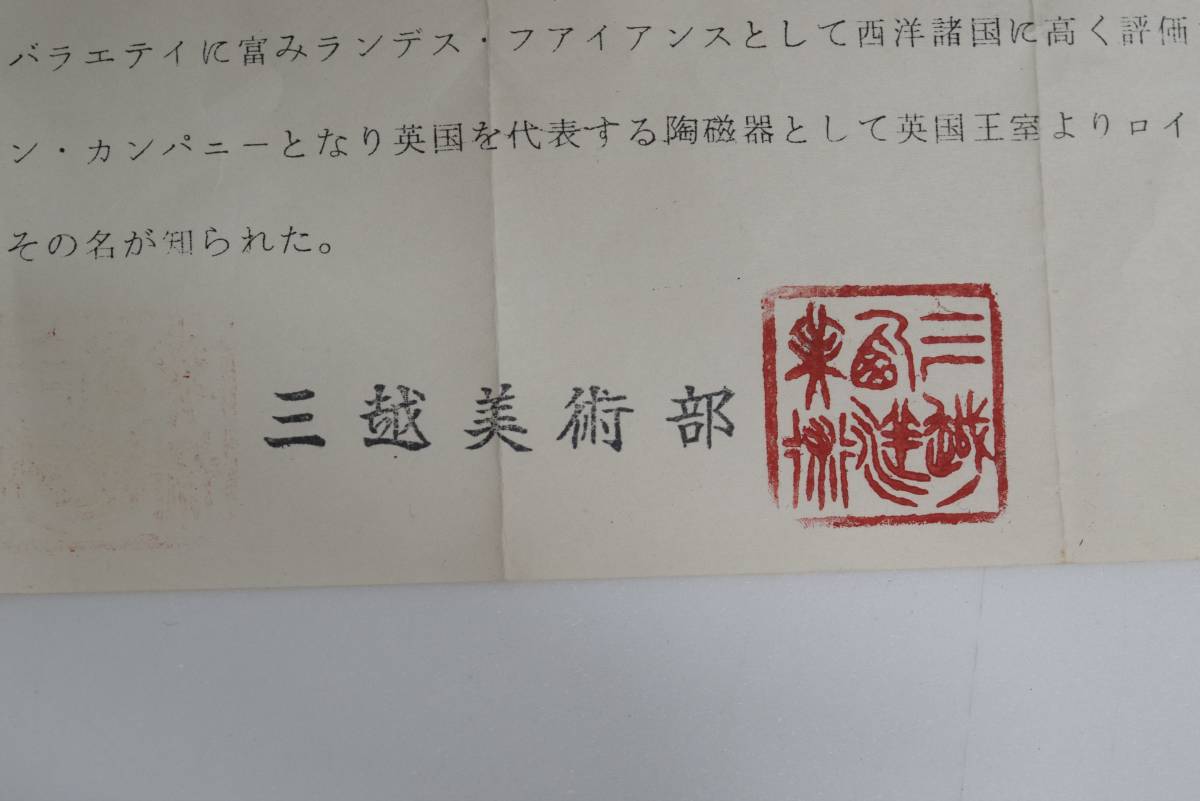 バラエテイに富みランデス・フアイアンスとして西洋諸国に高く評価
ン・カンパニーとなり英国を代表する陶磁器として英国王室よりロイ
その名が知られた。
三越美術部